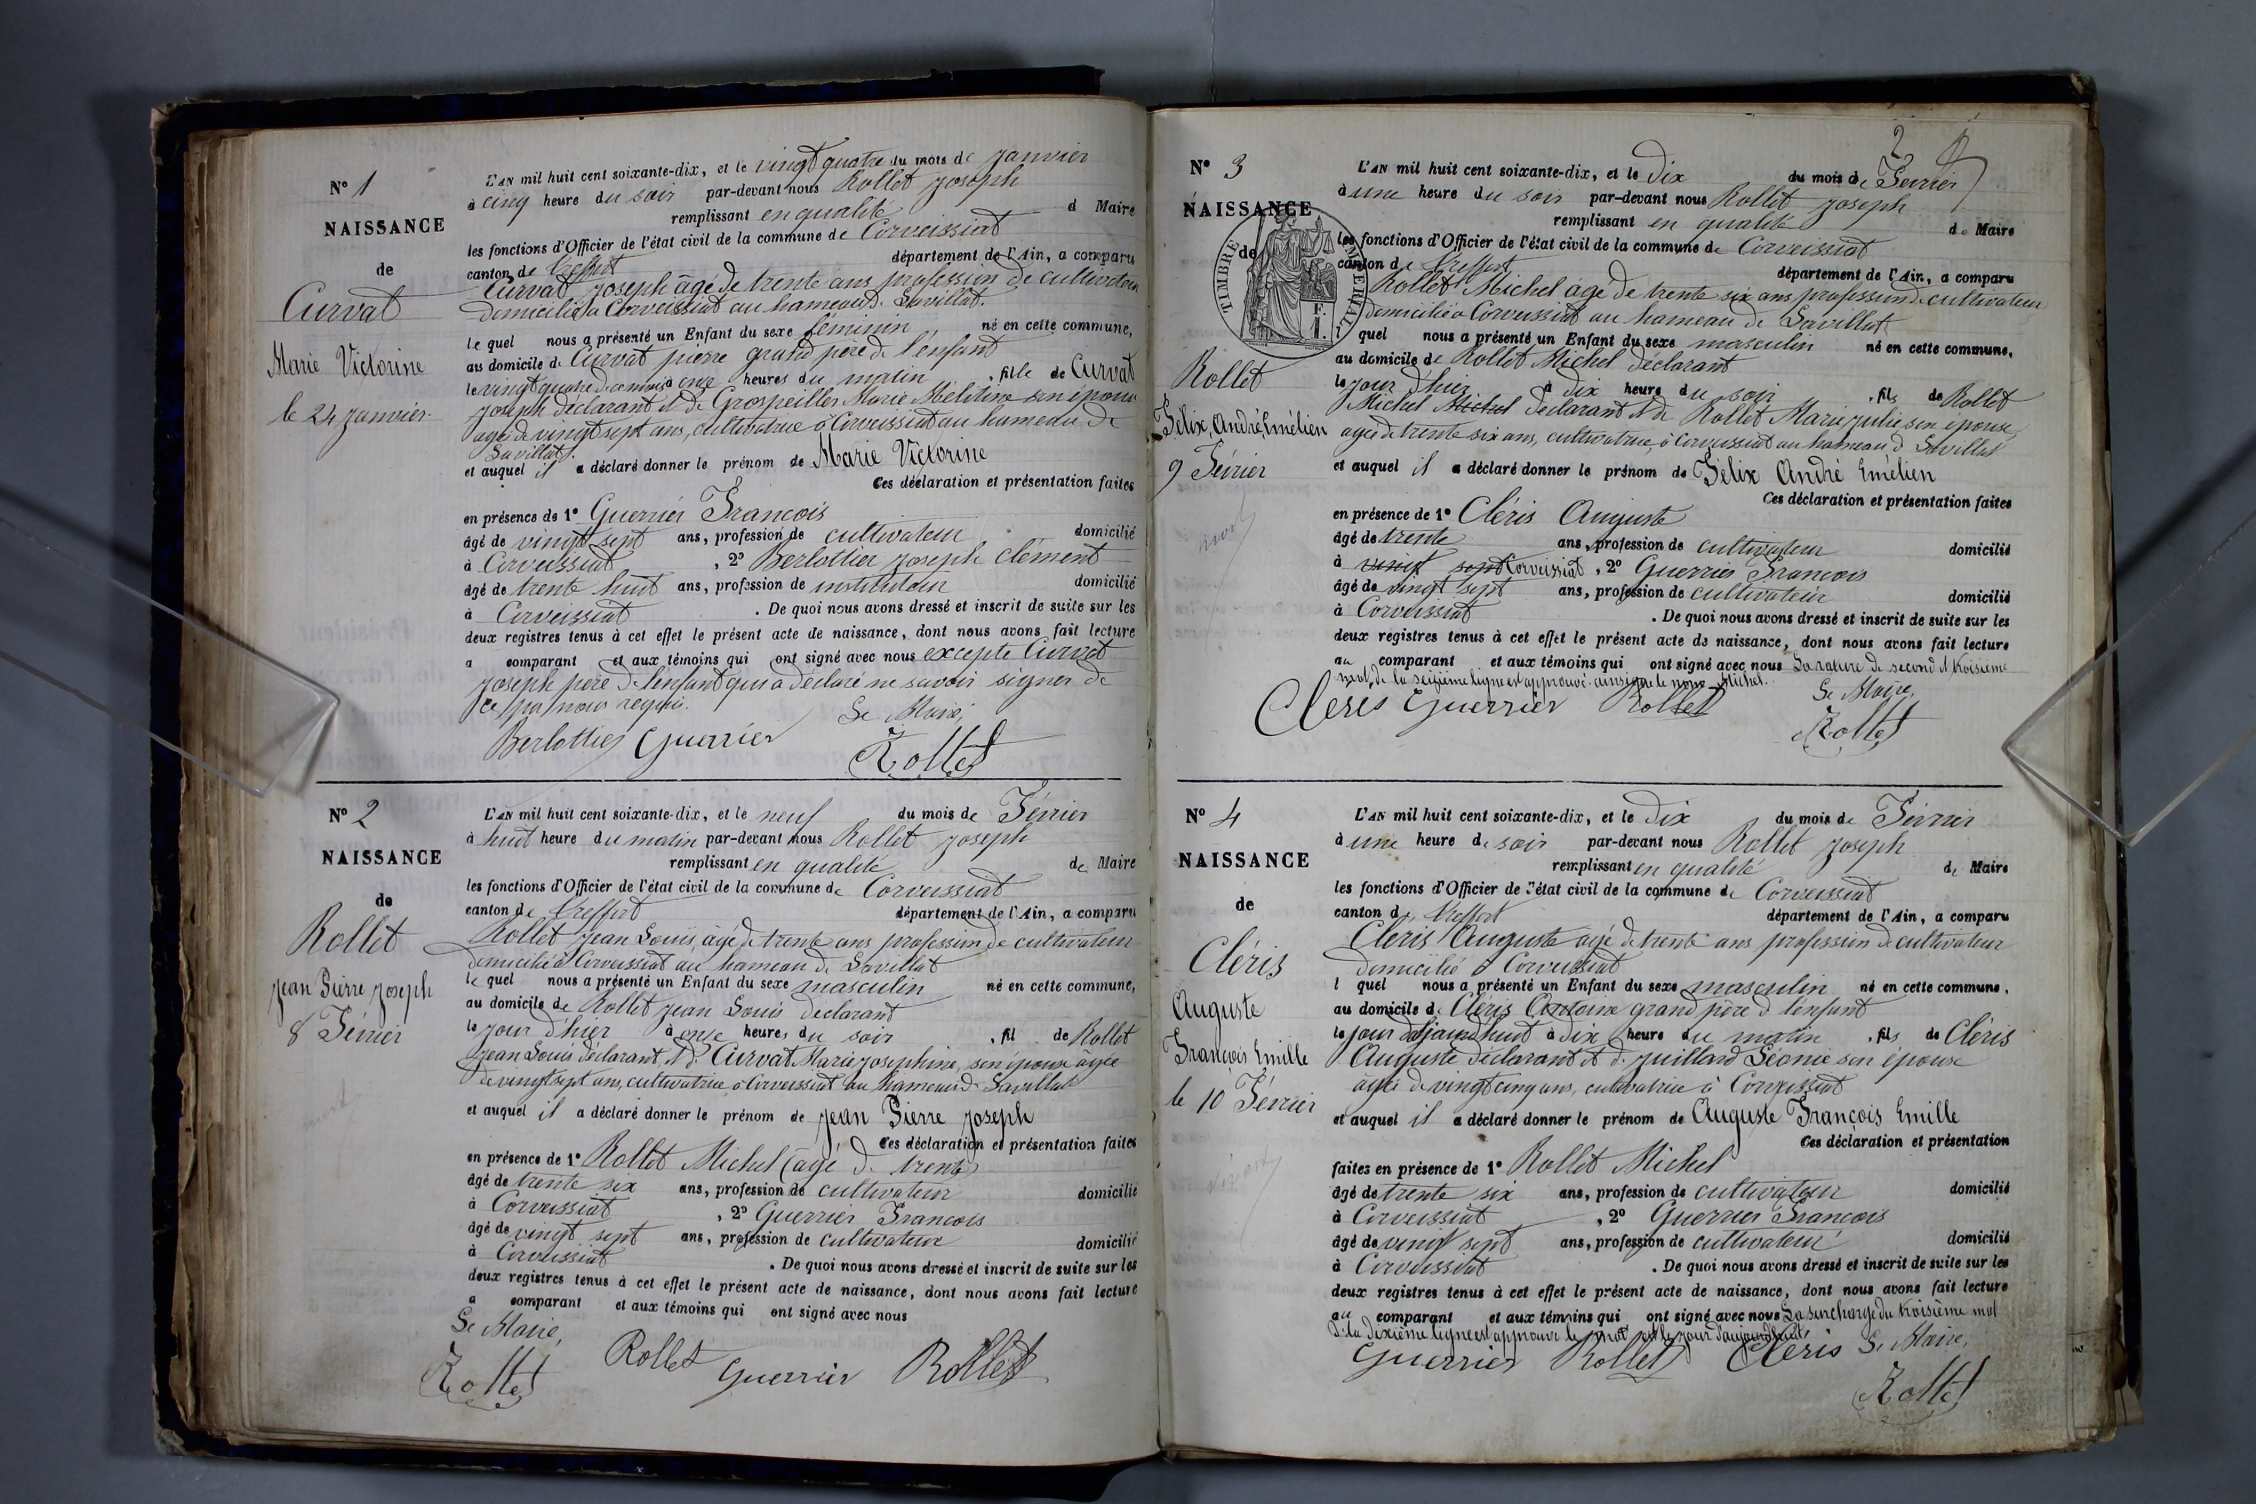 N° 1
NAISSANCE
de
Curvat
Marie Victorine
le 24 Janvier
L'AN mil huit cent soixante-dix, et le vingt quatre du mois de Janvier
à cinq heure du soir par-devant nous Rollet Joseph
remplissant en qualité d Maire
les fonctions d'Officier de l'état civil de la commune de Corveissiat
canton de Treffort département de l'Ain, a comparu
Curvat Joseph âgé de trente ans profession de cultivateur
domicilié à Corveissiat au hameau de Savillat.
le quel nous a présenté un Enfant du sexe féminin né en cette commune,
au domicile de Curvat pierre grand père de l'enfant
le vingt quatre du mois à onze heures du matin , fille de Curvat
Joseph déclarant et de Grospeillet Marie Mélitine son épouse
agée de vingt sept ans, cultivatrice à Corveissiat au hameau de
Savillat.
et auquel il a déclaré donner le prénom de Marie Victorine
Ces déclaration et présentation faites
en présence de 1° Guerrier François
âgé de vingt sept ans, profession de cultivateur domicilié
à Corveissiat , 2° Berlottier Joseph Clément
âgé de trente huit ans, profession de instituteur domicilié
à Corveissiat . De quoi nous avons dressé et inscrit de suite sur les
deux registres tenus à cet effet le présent acte de naissance, dont nous avons fait lecture
a comparant et aux témoins qui ont signé avec nous excepté Curvat
Joseph père de l'enfant qui a déclaré ne savoir signer de
ce par nous requis.
Le Maire,
Berlottier Guerrier Rollet
N° 2
NAISSANCE
de
Rollet
Jean Pierre Joseph
8 Février
L'AN mil huit cent soixante-dix, et le neuf du mois de Février
à huit heure du matin par-devant nous Rollet Joseph
remplissant en qualité de Maire
les fonctions d'Officier de l'état civil de la commune de Corveissiat
canton de Treffort département de l'Ain, a comparu
Rollet Jean Louis, âgé de trente ans profession de cultivateur
domicilié à Corveissiat au hameau de Savillat
le quel nous a présenté un Enfant du sexe masculin né en cette commune,
au domicile de Rollet Jean Louis déclarant
le jour d'hier à onze heure, du soir , fil de Rollet
Jean Louis déclarant, et de Curvat Marie Josephine, son épouse âgée
de vingt sept ans, cultivatrice à Corveissiat au hameau de Savillat
et auquel il a déclaré donner le prénom de Jean Pierre Joseph
Ces déclaration et présentation faites
en présence de 1° Rollet Michel (âgé de trente)
âgé de trente six ans, profession de cultivateur domicilié
à Corveissiat , 2° Guerrier François
âgé de vingt sept ans, profession de cultivateur domicilié
à Corveissiat . De quoi nous avons dressé et inscrit de suite sur les
deux registres tenus à cet effet le présent acte de naissance, dont nous avons fait lecture
a comparant et aux témoins qui ont signé avec nous
Le Maire,
Rollet Rollet Guerrier Rollet
2
N° 3
NAISSANCE
de
TIMBRE IMPERIAL
F.
1.
Rollet
Félix, André, Emélien
9 Février
L'AN mil huit cent soixante-dix, et le Dix du mois de Février
à une heure du soir par-devant nous Rollet Joseph
remplissant en qualité de Maire
les fonctions d'Officier de l'état civil de la commune de Corveissiat
canton de Treffort département de l'Ain, a comparu
Rollet Michel âgé de trente six ans profession de cultivateur
domicilié à Corveissiat au hameau de Savillat
l quel nous a présenté un Enfant du sexe masculin né en cette commune,
au domicile de Rollet Michel déclarant
le jour d'hier à dix heure du soir , fils de Rollet
Michel Michel déclarant et de Rollet Marie Julie son épouse
agée de trente six ans, cultivatrice, à Corveissiat au hameau d Savillat
et auquel il a déclaré donner le prénom de Félix André Emélien
Ces déclaration et présentation faites
en présence de 1° Cléris Auguste
âgé de trente ans, profession de cultivateur domicilié
à vingt sept Corveissiat , 2° Guerrier François
âgé de vingt sept ans, profession de cultivateur domicilié
à Corveissiat . De quoi nous avons dressé et inscrit de suite sur les
deux registres tenus à cet effet le présent acte de naissance, dont nous avons fait lecture
au comparant et aux témoins qui ont signé avec nous La rature de second et troisième
mot de la seizième ligne est approuvé ainsi que le nom Michel.
Le Maire,
Cléris Guerrier Rollet Rollet
N° 4
NAISSANCE
de
Cléris
Auguste
François Emille
le 10 Février
L'AN mil huit cent soixante-dix, et le Dix du mois de Février
à une heure de soir par-devant nous Rollet Joseph
remplissant en qualité de Maire
les fonctions d'Officier de l'état civil de la commune de Corveissiat
canton de Treffort département de l'Ain, a comparu
Cléris Auguste âgé de trente ans profession de cultivateur
domicilié à Corveissiat
l quel nous a présenté un Enfant du sexe masculin né en cette commune,
au domicile de Cléris Antoine grand père d l'enfant
le jour d'aujourd'hui à dix heure du matin , fils de Cléris
Auguste déclarant et de Juillard Léonie son épouse
âgée de vingt cinq ans, cultivatrice à Corveissiat
et auquel il a déclaré donner le prénom de Auguste François Emille
Ces déclaration et présentation
faites en présence de 1° Rollet Michel
âgé de trente six ans, profession de cultivateur domicilié
à Corveissiat , 2° Guerrier François
âgé de vingt sept ans, profession de cultivateur domicilié
à Corveissiat . De quoi nous avons dressé et inscrit de suite sur les
deux registres tenus à cet effet le présent acte de naissance, dont nous avons fait lecture
au comparant et aux témoins qui ont signé avec nous La surcharge du troisième mot
de la dixième ligne est approuvé le mot est le jour d'aujourd'hui
Guerrier Rollet Cléris Le Maire,
Rollet